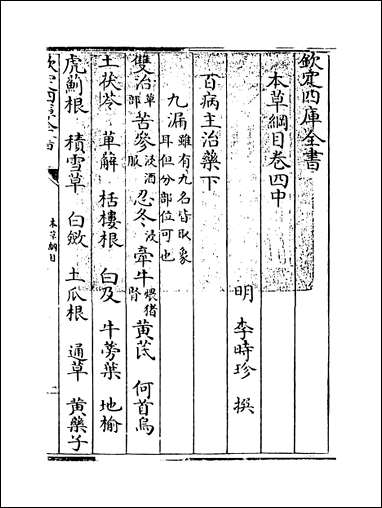 欽定四庫全書
本草綱目卷四中
明 李時珍 撰
百病主治藥下
九漏雖有九名皆取象耳但分部位可也
雙治草部苦參浸酒服忍冬浸 牽牛煨猪腎黄芪 何首烏
土茯苓 萆薢 栝樓根 白及 牛蒡葉 地榆
虎薊根 積雪草 白蘞 土瓜根 通草 黄藥子
本草綱目